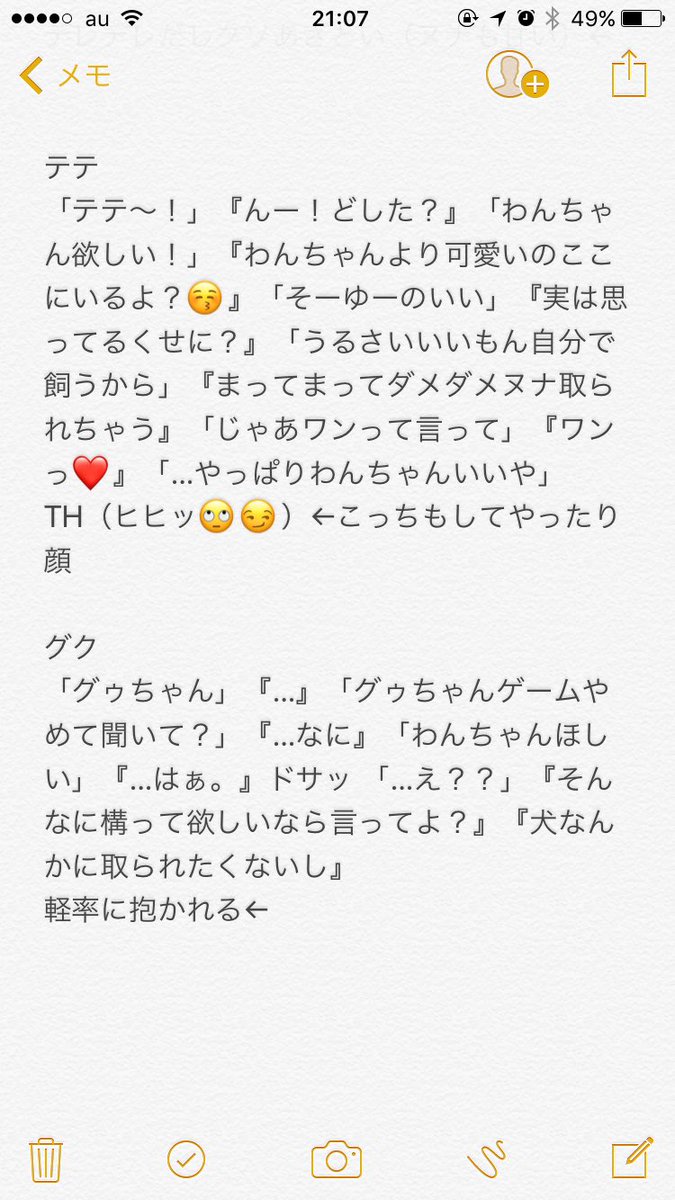 au 21:07 49%
メモ
テテ
「テテ〜！」『んー！どした？』「わんちゃ
ん欲しい！」『わんちゃんより可愛いのここ
にいるよ？😚』「そーゆーのいい」『実は思
ってるくせに？』「うるさいいいもん自分で
飼うから」『まってまってダメダメヌナ取ら
れちゃう』「じゃあワンって言って」『ワン
っ❤️』「...やっぱりわんちゃんいいや」
TH（ヒヒッ🙄😏）←こっちもしてやったり
顔
グク
「グゥちゃん」『...』「グゥちゃんゲームや
めて聞いて？」『...なに』「わんちゃんほし
い」『...はぁ。』ドサッ 「...え？？」『そん
なに構って欲しいなら言ってよ？』『犬なん
かに取られたくないし』
軽率に抱かれる←